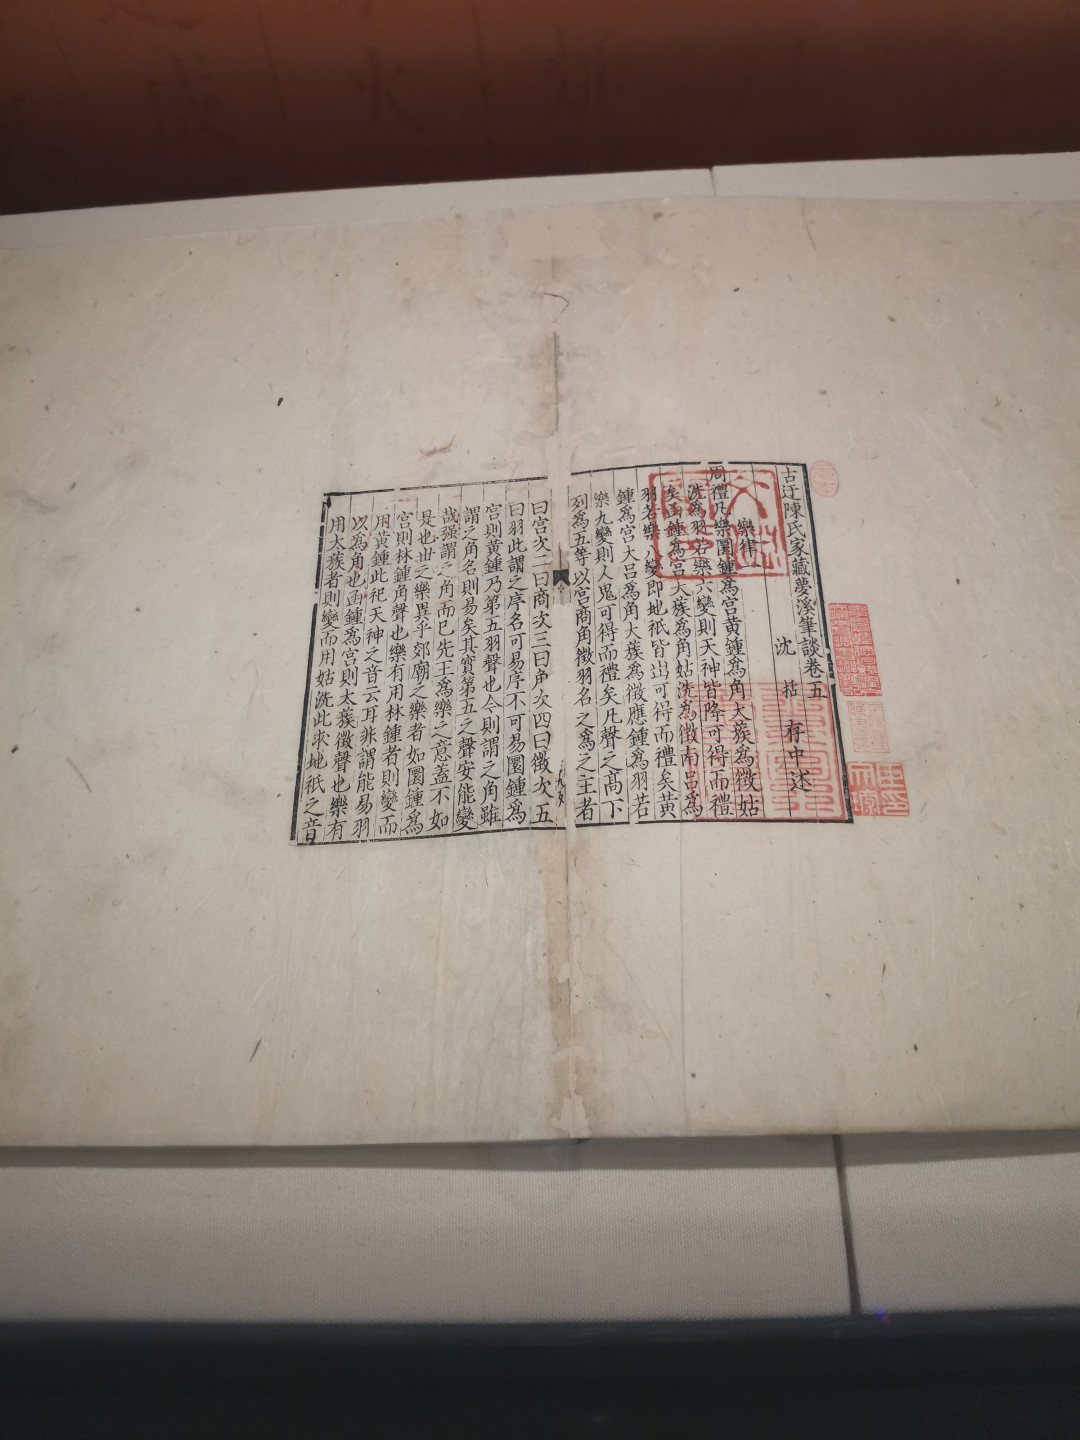 古迂陳氏家藏夢溪筆談卷五
沈括存中述
樂律一
周禮凡樂圜鍾爲宮黃鍾爲角大蔟爲徵姑
洗爲羽若樂六變則天神皆降可得而禮
矣函鍾爲宮大蔟爲角姑洗爲徵南呂爲
羽若樂八變即地祇皆出可得而禮矣黃
鍾爲宮大呂爲角大蔟爲徵應鍾爲羽若
樂九變則人鬼可得而禮矣凡聲之高下
列爲五等以宮商角徵羽名之爲之主者
曰宮次二曰商次三曰角次四曰徵次五
曰羽此謂之序名可易序不可易圜鍾爲
宮則黃鍾乃第五羽聲也今則謂之角雖
謂之角名則易矣其實第五之聲安能變
哉强謂之角而已先王爲樂之意蓋不如
是也世之樂異乎郊廟之樂者如圜鍾爲
宮則林鍾角聲也樂有用林鍾者則變而
用黃鍾此祀天神之音云耳非謂能易羽
以爲角也函鍾爲宮則太蔟徵聲也樂有
用大蔟者則變而用姑洗此求地祇之音